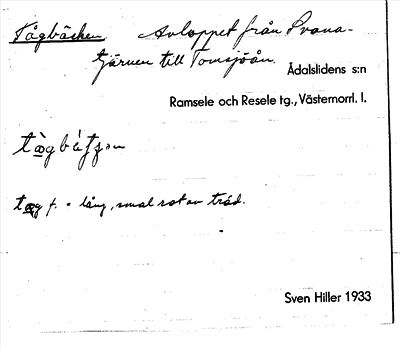 Tågbäcken. Avloppet från Svana-
tjärnen till Tomsjöån.
Ådalslidens s:n
Ramsele och Resele tg., Västernorrl. l.
tæg f. = lång, smal rot av träd.
Sven Hiller 1933